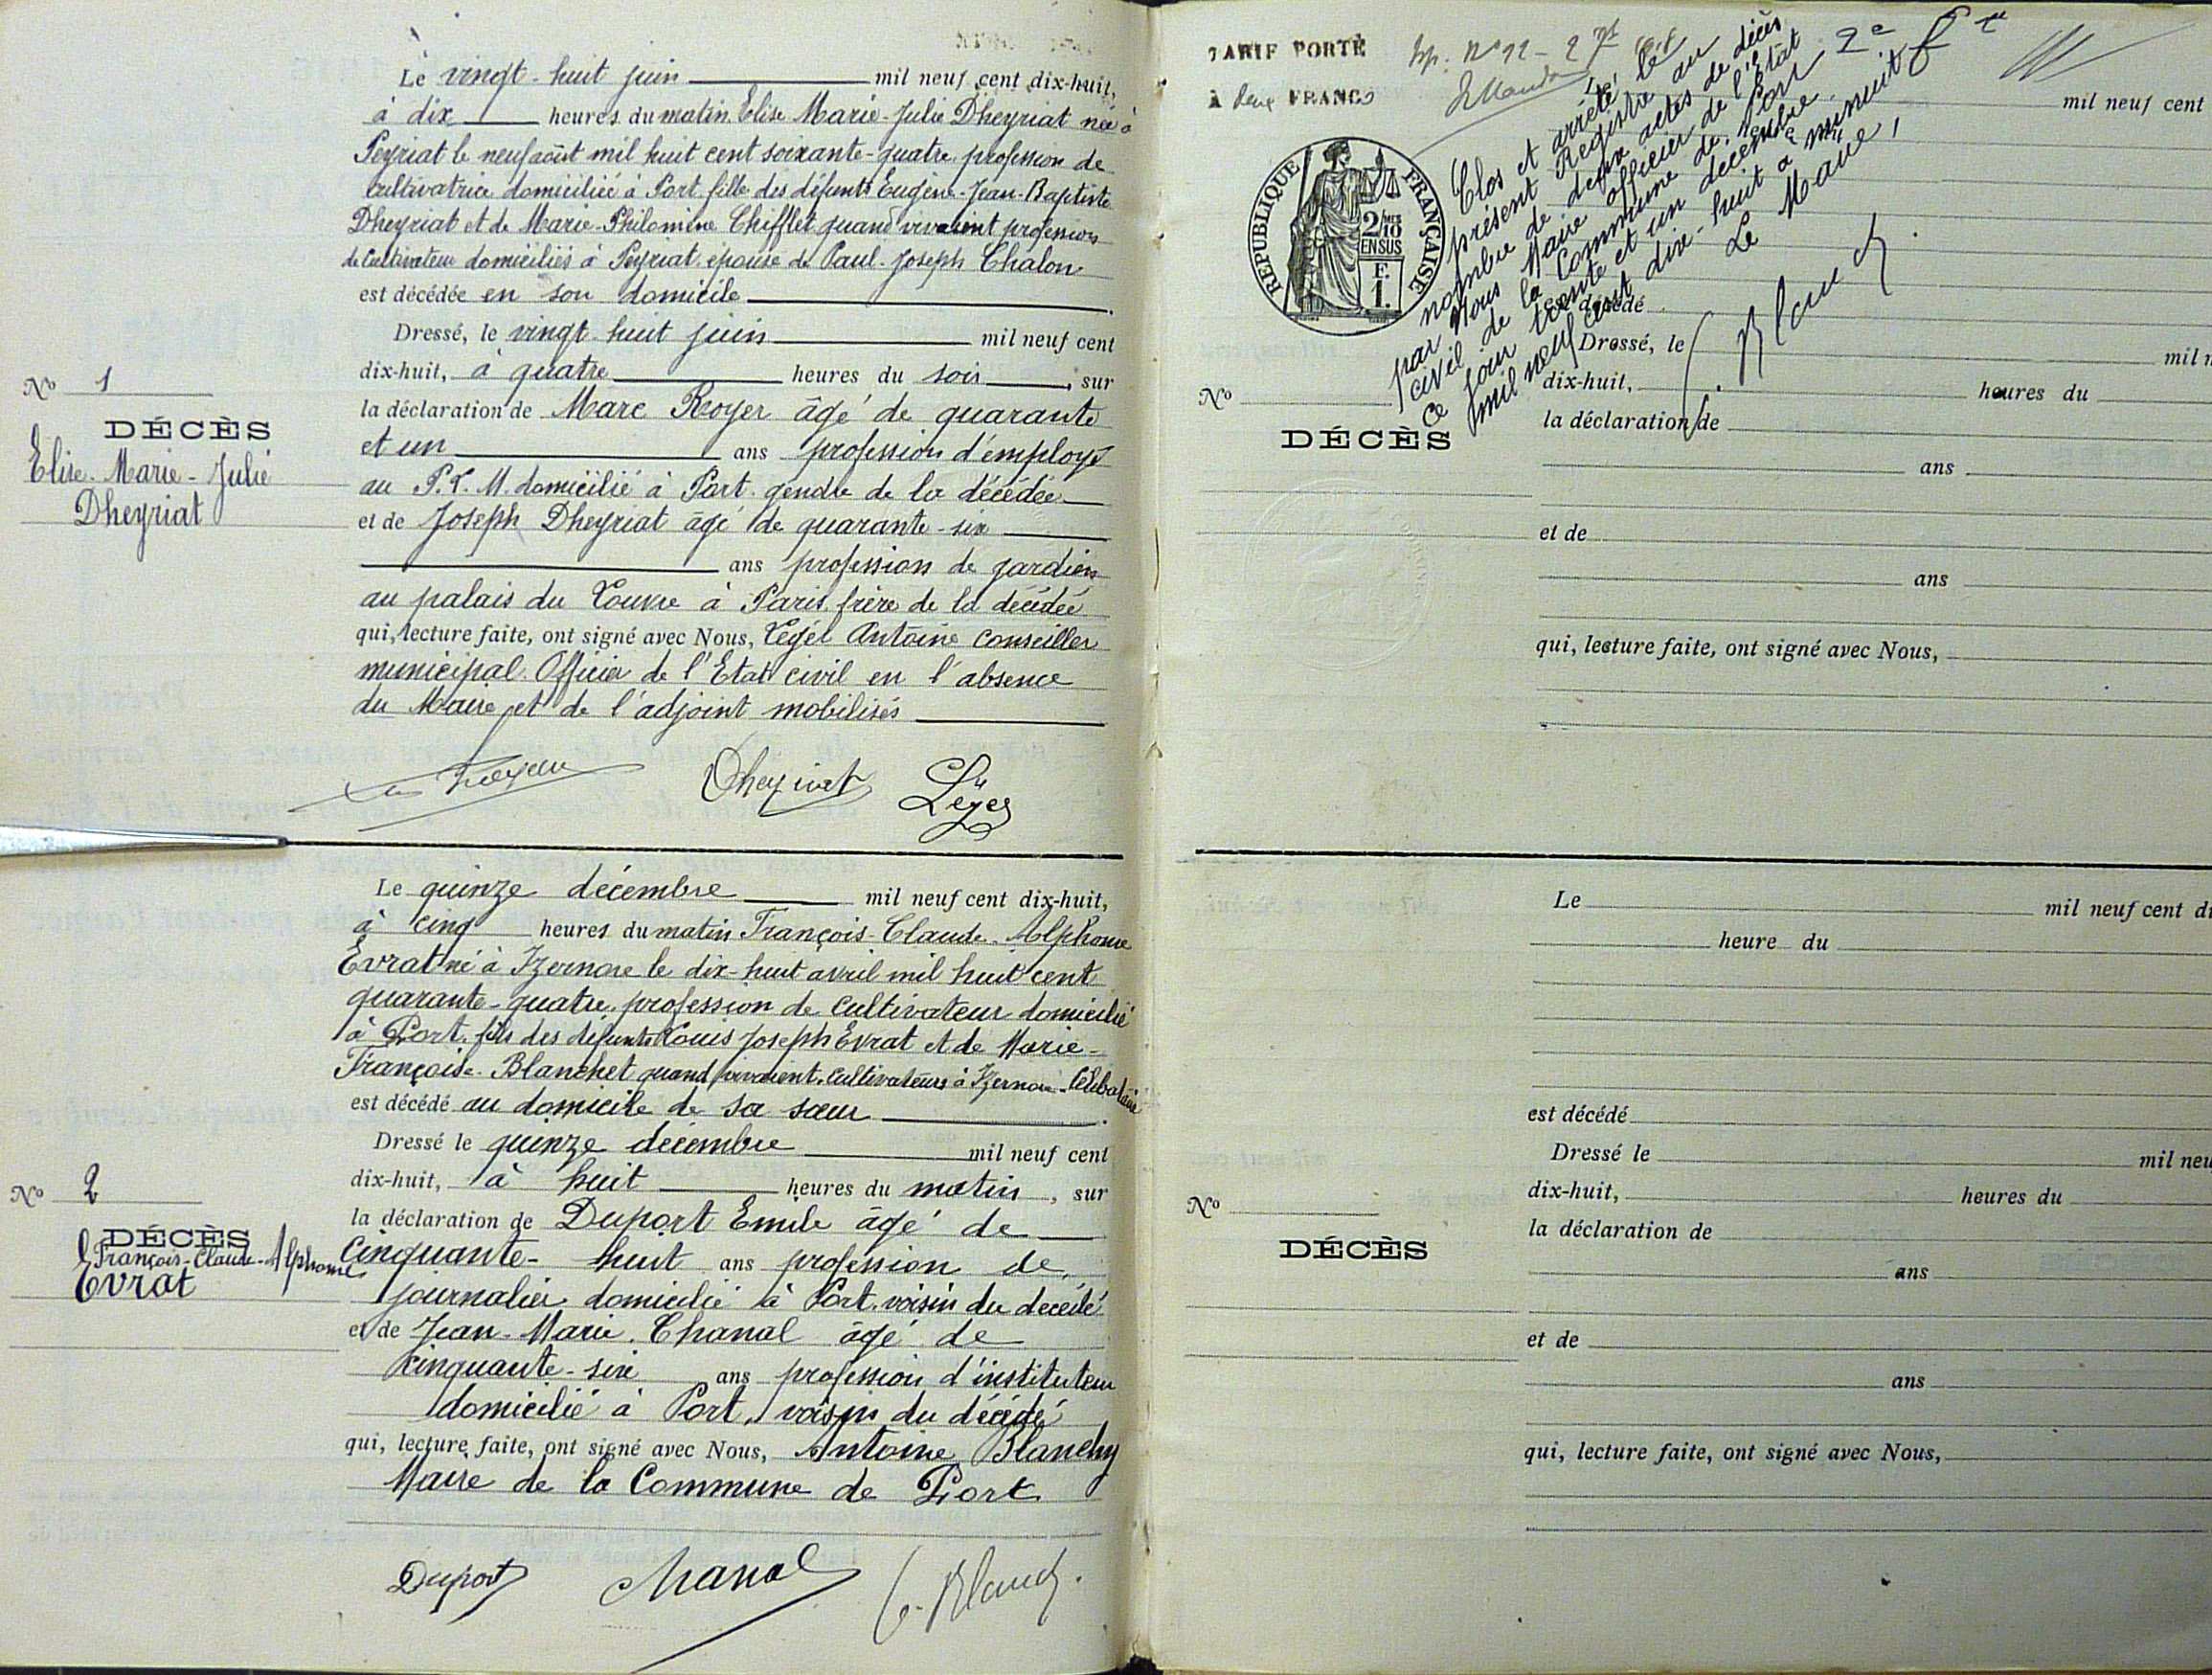 Le vingt-huit juin mil neuf cent dix-huit,
à dix heures du matin, Elise Marie-Julie Dheyriat née à
Peyriat le neuf août mil huit cent soixante-quatre, profession de
cultivatrice domiciliée à Port, fille des défunts Eugène-Jean-Baptiste
Dheyriat et de Marie-Philomine Chifflet quand vivaient profession
de Cultivateur domiciliés à Peyriat, épouse de Paul-Joseph Chalon
est décédée en son domicile
Dressé, le vingt-huit juin mil neuf cent
dix-huit, à quatre heures du soir, sur
la déclaration de Marc Royer âgé de quarante
et un ans profession d'employé
au P.L.M. domicilié à Port, gendre de la décédée
et de Joseph Dheyriat âgé de quarante-six
ans profession de gardien
au palais du Louvre à Paris, frère de la décédée
qui, lecture faite, ont signé avec Nous, Antoine conseiller
municipal, Officier de l'Etat civil en l'absence
du Maire et de l'adjoint mobilisés
Dheyriat
No 1
DÉCÈS
Elise-Marie-Julie
Dheyriat
Le quinze décembre mil neuf cent dix-huit,
à cinq heures du matin François-Claude-Alphonse
Evrat né à Izernore le dix-huit avril mil huit cent
quarante-quatre, profession de cultivateur domicilié
à Port, fils des défunts Louis Joseph Evrat et de Marie-
Françoise Blanchet quand vivaient, cultivateurs à Izernore - Célibataire
est décédé au domicile de sa sœur
Dressé le quinze décembre mil neuf cent
dix-huit, à huit heures du matin, sur
la déclaration de Duport Emile âgé de
cinquante-huit ans profession de
journalier domicilié à Port, voisin du décédé
et de Jean-Marie Chanal âgé de
cinquante-six ans profession d'instituteur
domicilié à Port, voisin du décédé
qui, lecture faite, ont signé avec Nous, Antoine Blanchy
Maire de la Commune de Port
Duport Chanal
No 2
DÉCÈS
François-Claude-Alphonse
Evrat
TARIF PORTÉ
À deux FRANCS
RÉPUBLIQUE FRANÇAISE
2/10 EN SUS
F. 1.
Clos et arrêté le
présent Registre au
nombre de deux actes de décès
par Nous Maire officier de l'Etat
civil de la Commune de Port
ce jour trente et un décembre
mil neuf cent dix-huit à minuit
Le Maire,
mil neuf cent
décédé
Dressé, le mil n
dix-huit, heures du
la déclaration de
ans
et de
ans
qui, lecture faite, ont signé avec Nous,
No
DÉCÈS
Le mil neuf cent di
heure du
est décédé
Dressé le mil neu
dix-huit, heures du
la déclaration de
ans
et de
ans
qui, lecture faite, ont signé avec Nous,
No
DÉCÈS